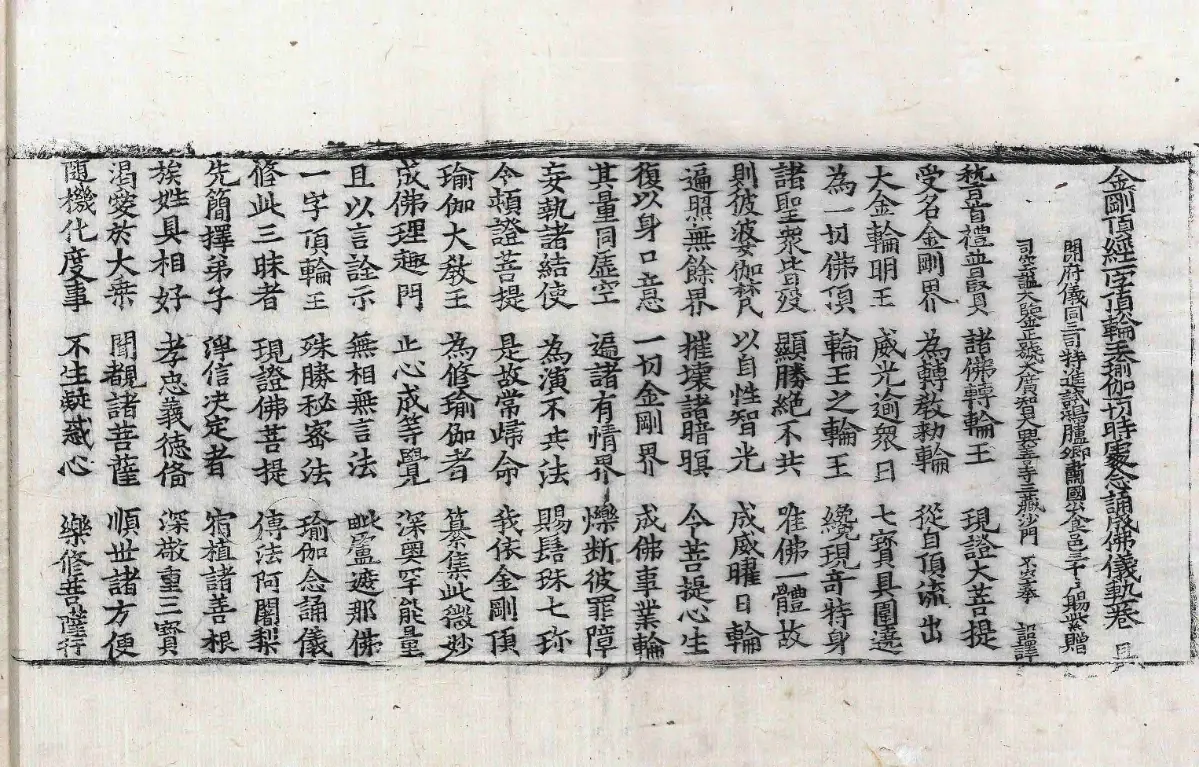 金剛頂經一字頂輪王瑜伽一切時處念誦成佛儀軌一卷 且
開府儀同三司特進試鴻臚卿肅國公食邑三千戶賜紫贈
司空謚大鑒正號大廣智大興善寺三藏沙門 不空奉 詔譯
稽首禮普賢 諸佛轉輪王 現證大菩提
受名金剛界 為轉教勅輪 從自頂流出
大金輪明王 威光逾衆日 七寶具圍遶
為一切佛頂 輪王之輪王 纔現奇特身
諸聖衆皆沒 顯勝絕不共 唯佛一體故
則彼婆伽梵 以自性智光 成威曜日輪
遍照無餘界 摧壞諸暗暝 今菩提心生
復以身口意 一切金剛界 成佛事業輪
其量同虛空 遍諸有情界 爍斷彼罪障
妄執諸結使 為演不共法 賜髻珠七珎
令頓證菩提 是故常歸命 我依金剛頂
瑜伽大教王 為修瑜伽者 纂集此微妙
成佛理趣門 止心成等覺 深奧罕能量
且以言詮示 無相無言法 毗盧遮那佛
一字頂輪王 殊勝秘密法 瑜伽念誦儀
修此三昧者 現證佛菩提 傳法阿闍梨
先簡擇弟子 淨信決定者 宿植諸善根
族姓具相好 孝忠義德備 深敬重三寳
渴愛於大乘 聞覩諸菩薩 順世諸方便
隨機化度事 不生疑惑心 樂修菩薩行